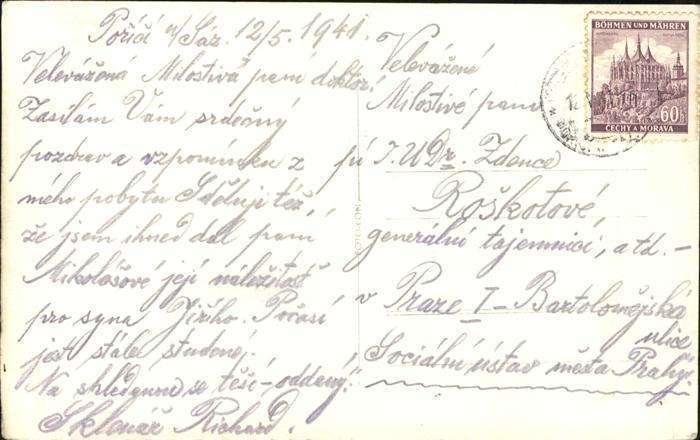 Poříčí n/Sáz. 12/5. 1941.
Velevážená Milostivá paní doktor!
Zasílám Vám srdečný
pozdrav a vzpomínku z
mého pobytu. Sděluji též,
že jsem ihned dal paní
Mikolášové její náležitost
pro syna Jiřího. Počasí
jest stále studené.
Na shledanou se těší-oddaný:
Sklenář Richard.
Velevážené
Milostivé paní
J.U.Dr. Zdence
Roškotové,
generální tajemnici, atd. -
v Praze I - Bartolomějská
ulice
Sociální ústav města Prahy.
BÖHMEN UND MÄHREN
60h
ČECHY A MORAVA